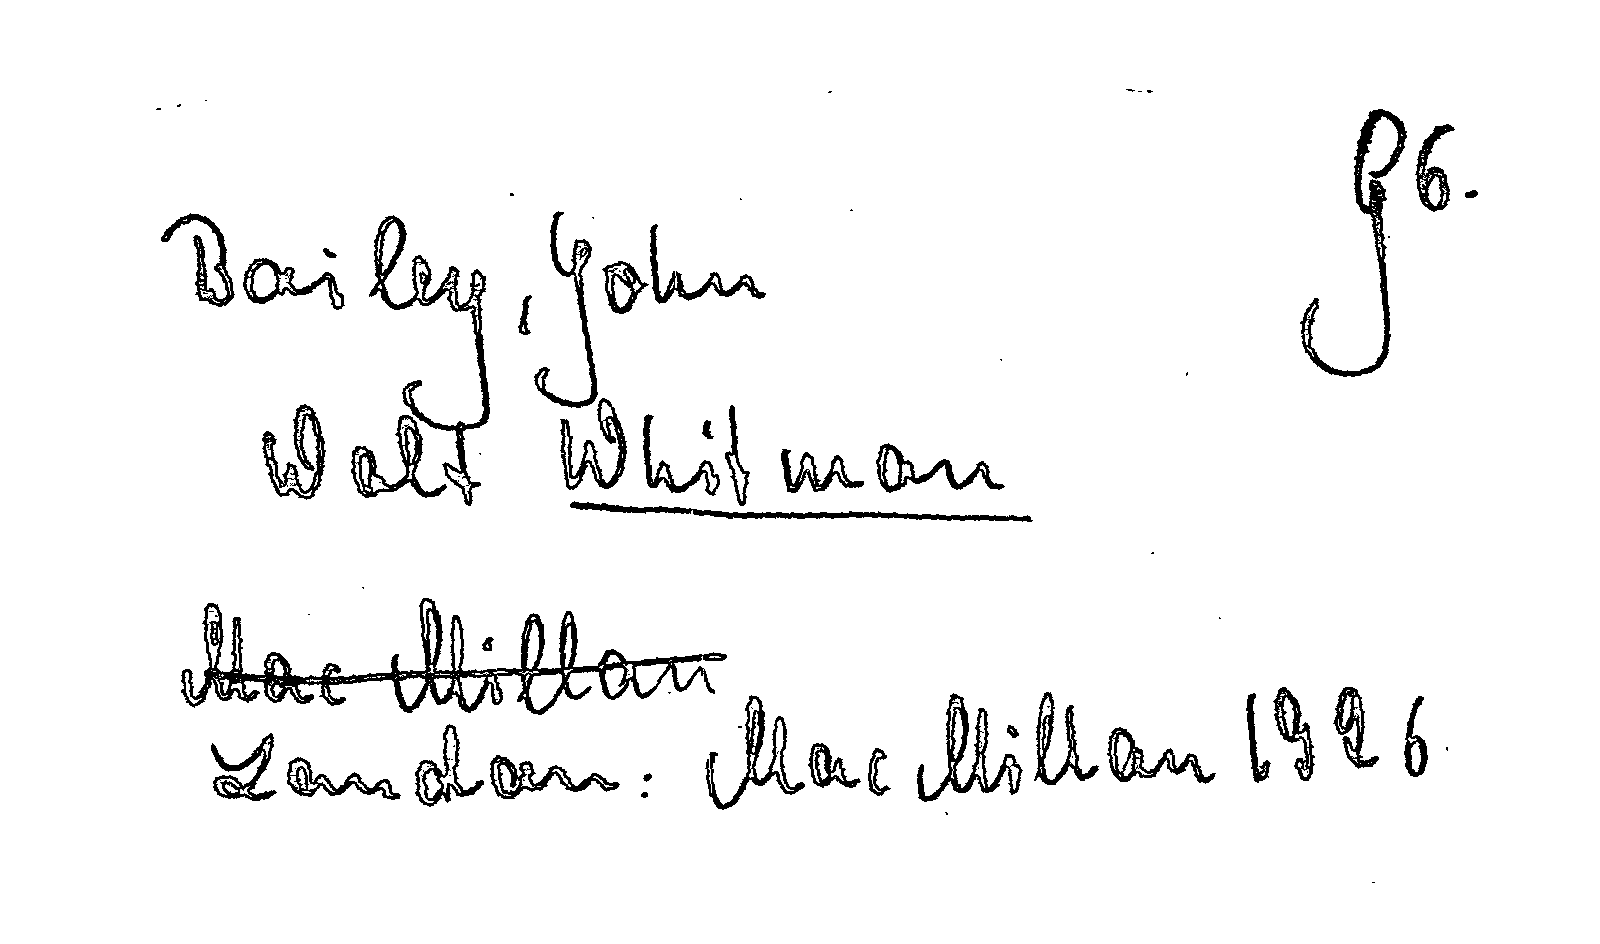 G6.
Bailey, John
Walt Whitman
Mac Millan
London: Mac Millan 1926